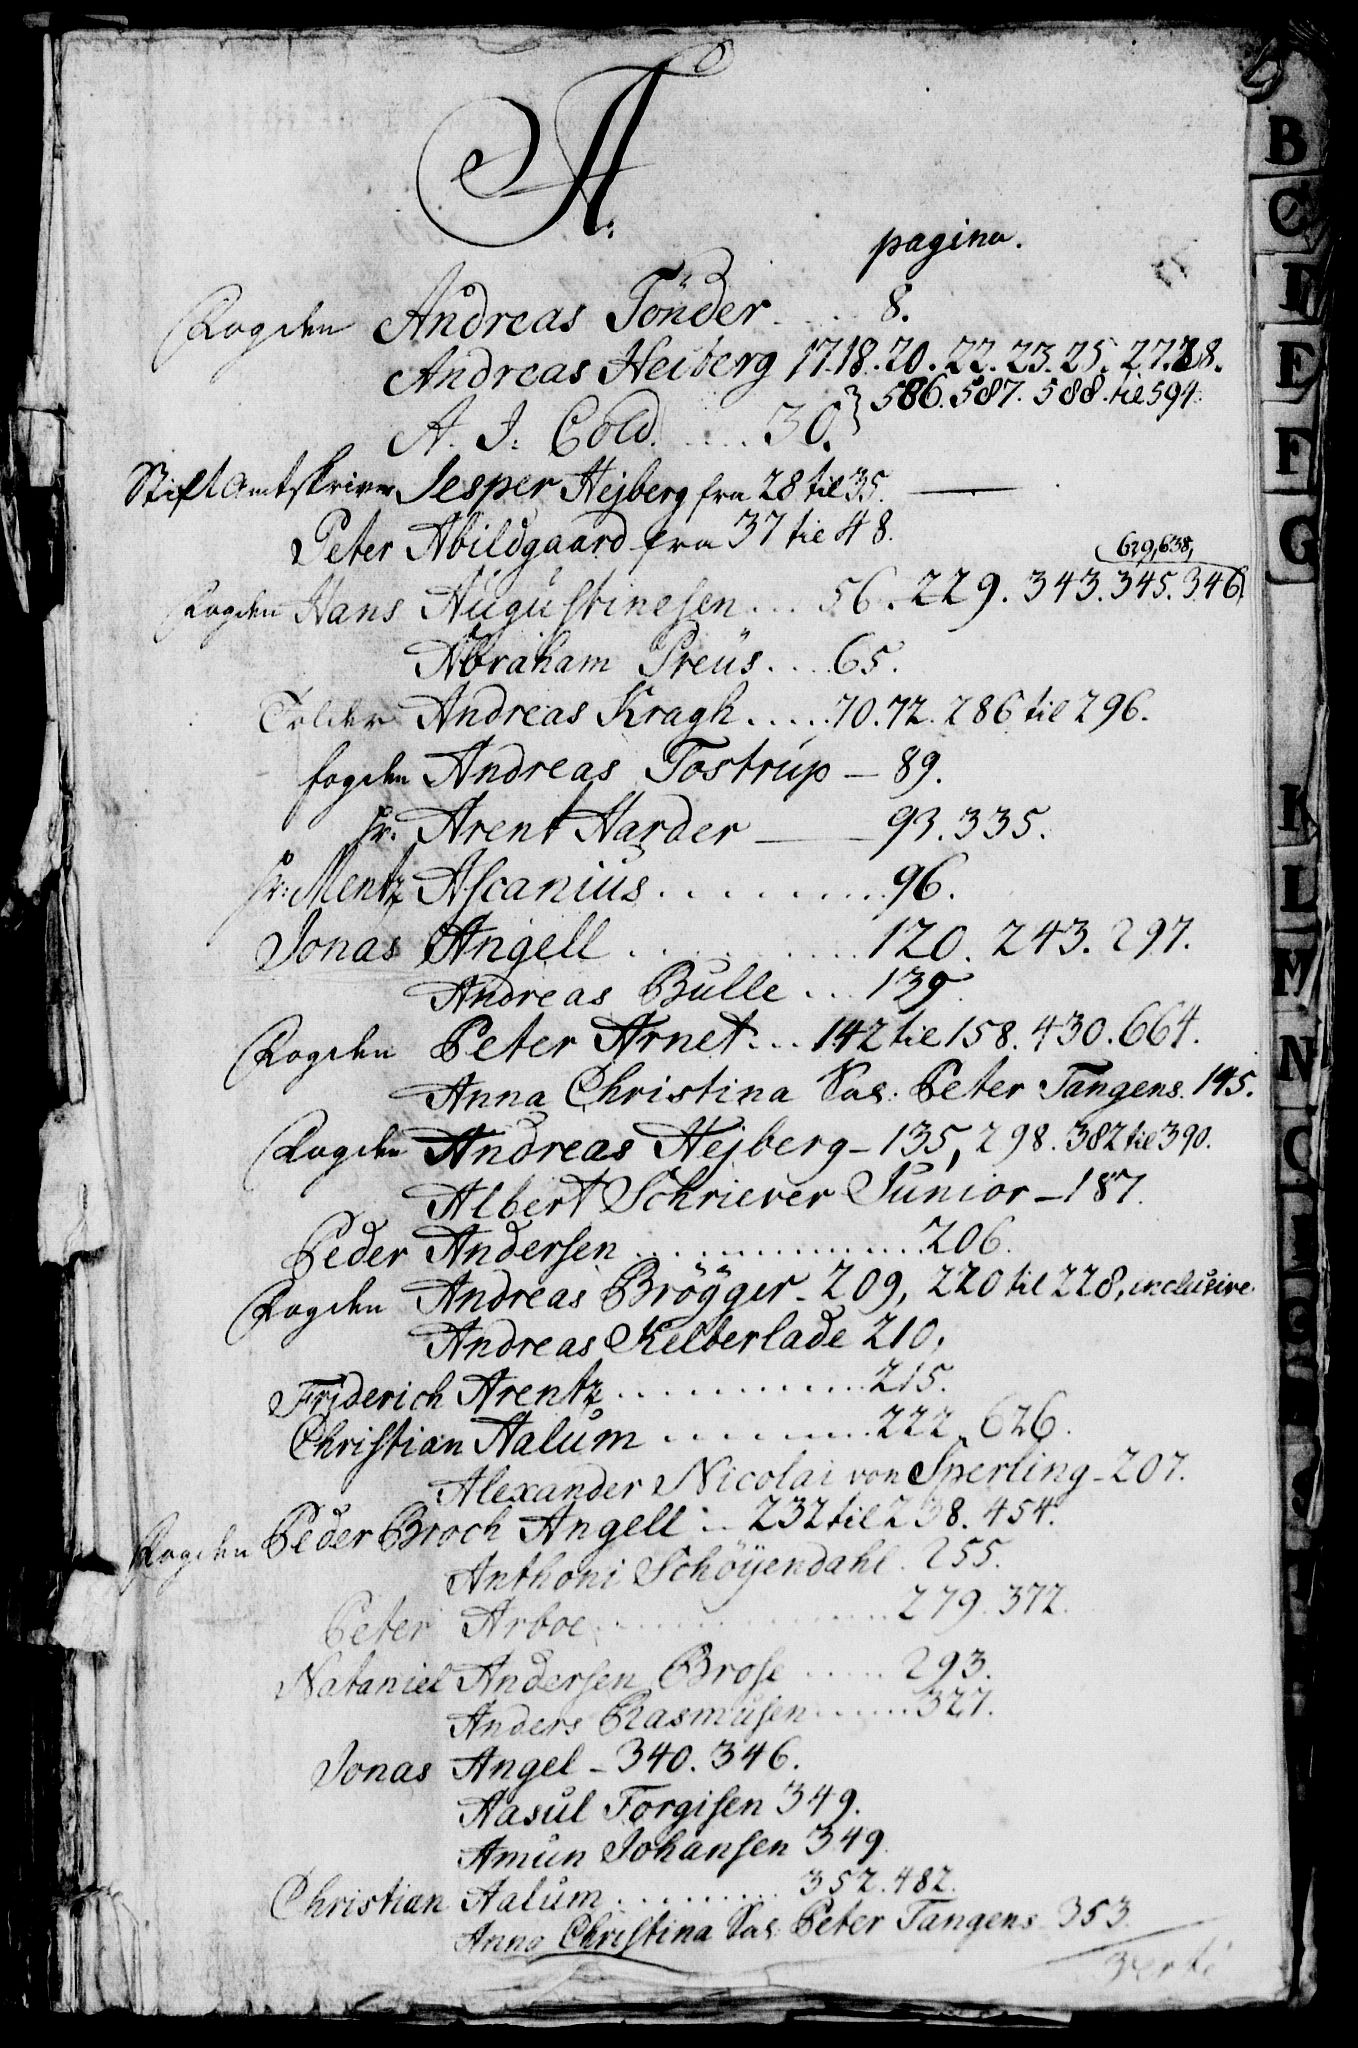 A:
pagina.
Fogden Andreas Tönder . . . . 8.
Andreas Heiberg 17.18.20.22.23.25.27.28.
586.587.588.til 594.
A. J: Cold. . . . . 30.
StiftAmtskriver Jesper Hejberg fra 28 til 35.
Peter Abildgaard fra 37 til 48.
629,638,
Fogden Hans Augustinesen . . . 56.229.343.345.346
Abraham Preüs . . . 65.
Tolder Andreas Kragh . . . . . 70.72.286 til 296.
fogden Andreas Tostrüp — 89.
hr: Arent Harder — 93.335.
hr: Mentz Ascanius . . . . . . . . . 96.
Jonas Angell . . . . . . . . . 120.243.297.
Andreas Bulle . . . 139.
Fogden Peter Arnet . . . 142 til 158.430.664.
Anna Christina Sal: Peter Tangens. 145.
Fogden Andreas Hejberg – 135, 298.382 til 390.
Albert Schriever Junior – 187.
Peder Andersen . . . . . . . . . . . 206.
Fogden Andreas Brögger – 209, 220 til 228, inclusive
Andreas Kelberlade 210,
Friderich Arentz . . . . . . . . . . . 215.
Christian Aalüm . . . . . . . . . 222.626.
Alexander Nicolai von Sperling – 207.
Fogden Peder Broch Angell . . 232 til 238.454.
Anthoni Schöyendahl . 255.
Peter Arboe . . . . . . . . . . . 279.372.
Nataniel Andersen Brose . . . . . 293.
Anders Rasmüsen . . . . . . 327.
Jonas Angel – 340.346.
Aasül Torgisen 349.
Amün Johansen 349.
Christian Aalüm . . . . . . . . . 352.482.
Anna Christina Sal: Peter Tangens 353.
Verte
B
C
D
E
F
G
K
L
M
N
O